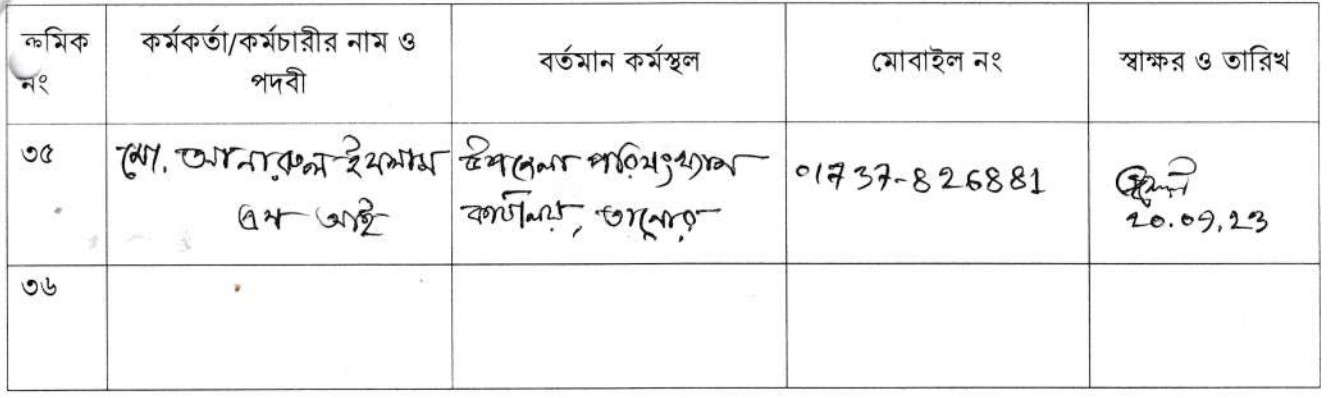 ক্রমিক নং
কর্মকর্তা/কর্মচারীর নাম ও পদবী
বর্তমান কর্মস্থল
মোবাইল নং
স্বাক্ষর ও তারিখ
৩৫
মো. আনারুল ইসলাম
এস আই
উপজেলা পরিসংখ্যান
কার্যালয়, তানোর
01737-826881
20.09.23
৩৬